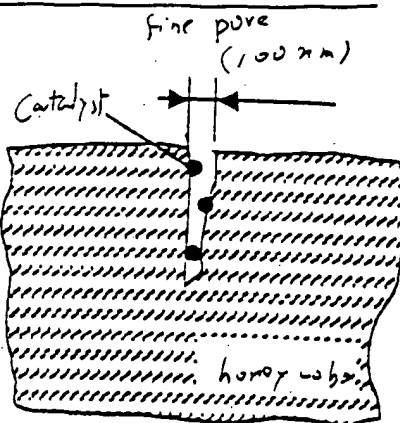 fine pore
(100 nm)
Catalyst
honey